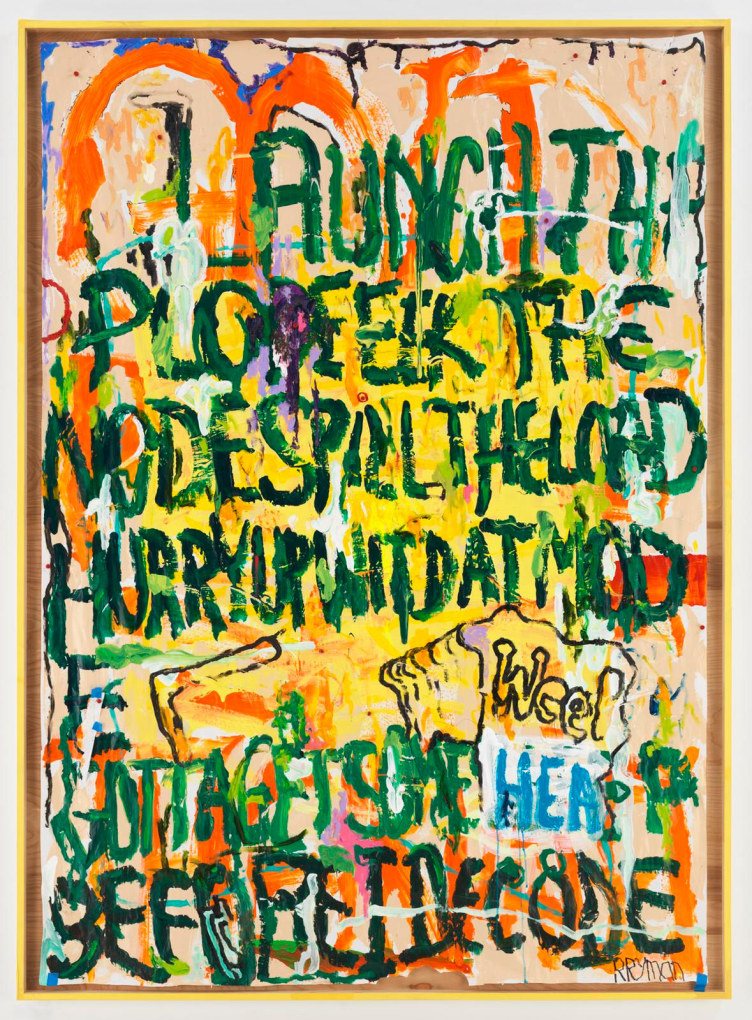 I LAUNCH THE
PLO
THE
NODE SPILL THE LOAD
HURRY UP WIT DAT MOD
E
Weel
GOTTA GET SOME HEA
BEFORE I DECODE
RRYMAN